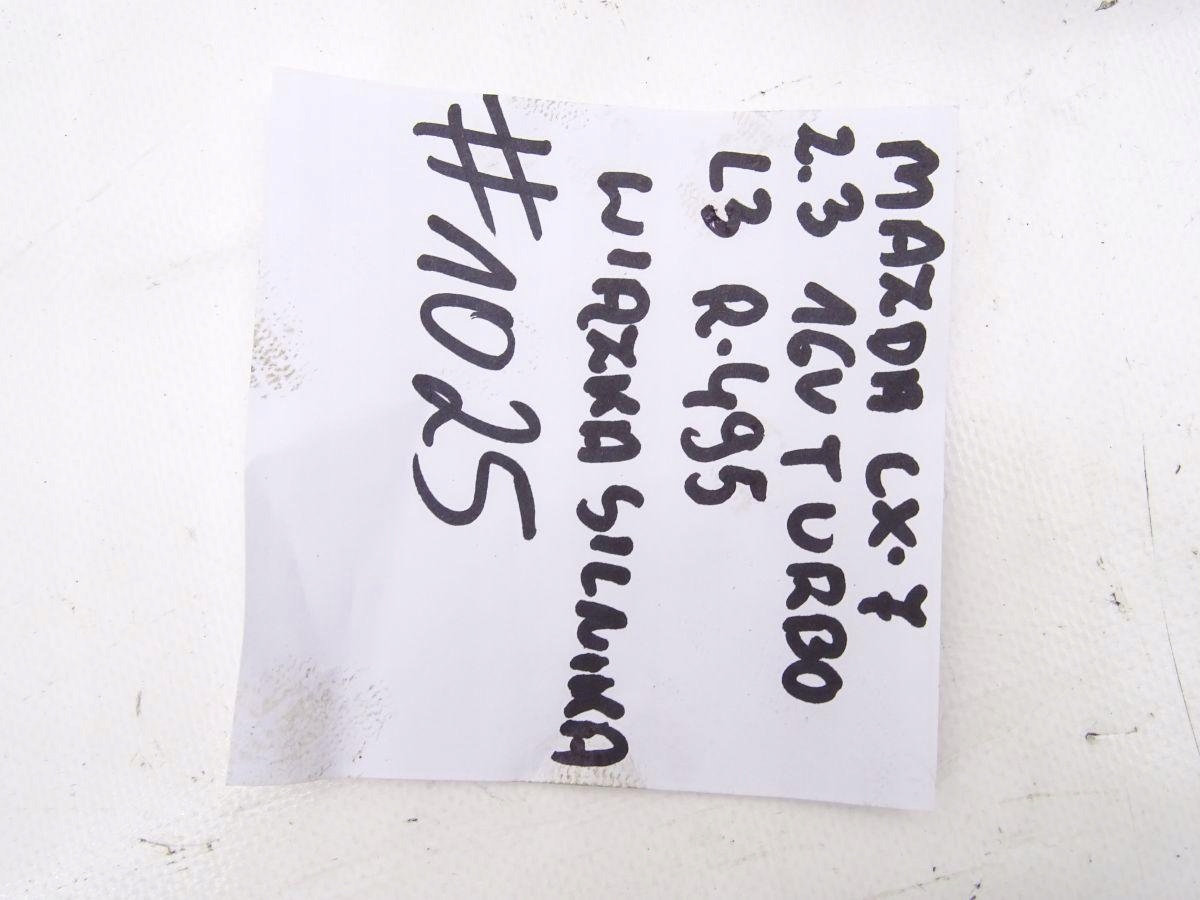 MAZDA CX-7
2.3 16V TURBO
L3 R.495
WIĄZKA SILNIKA
#1025